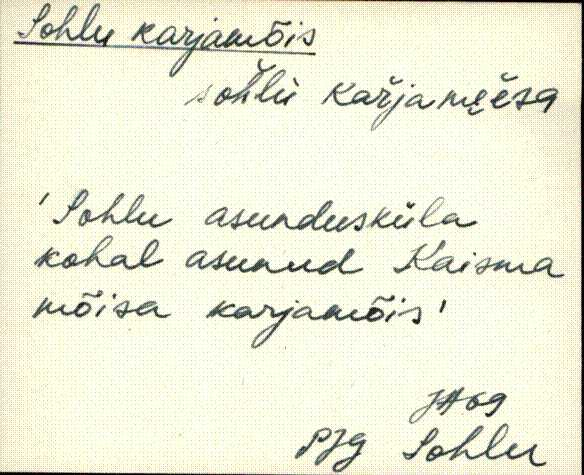 Sohlu karjamõis
sohlu karjamẹẹsa
'Sohlu asundusküla
kohal asunud Kaisma
mõisa karjamõis'
JA 69
PJg Sohlu